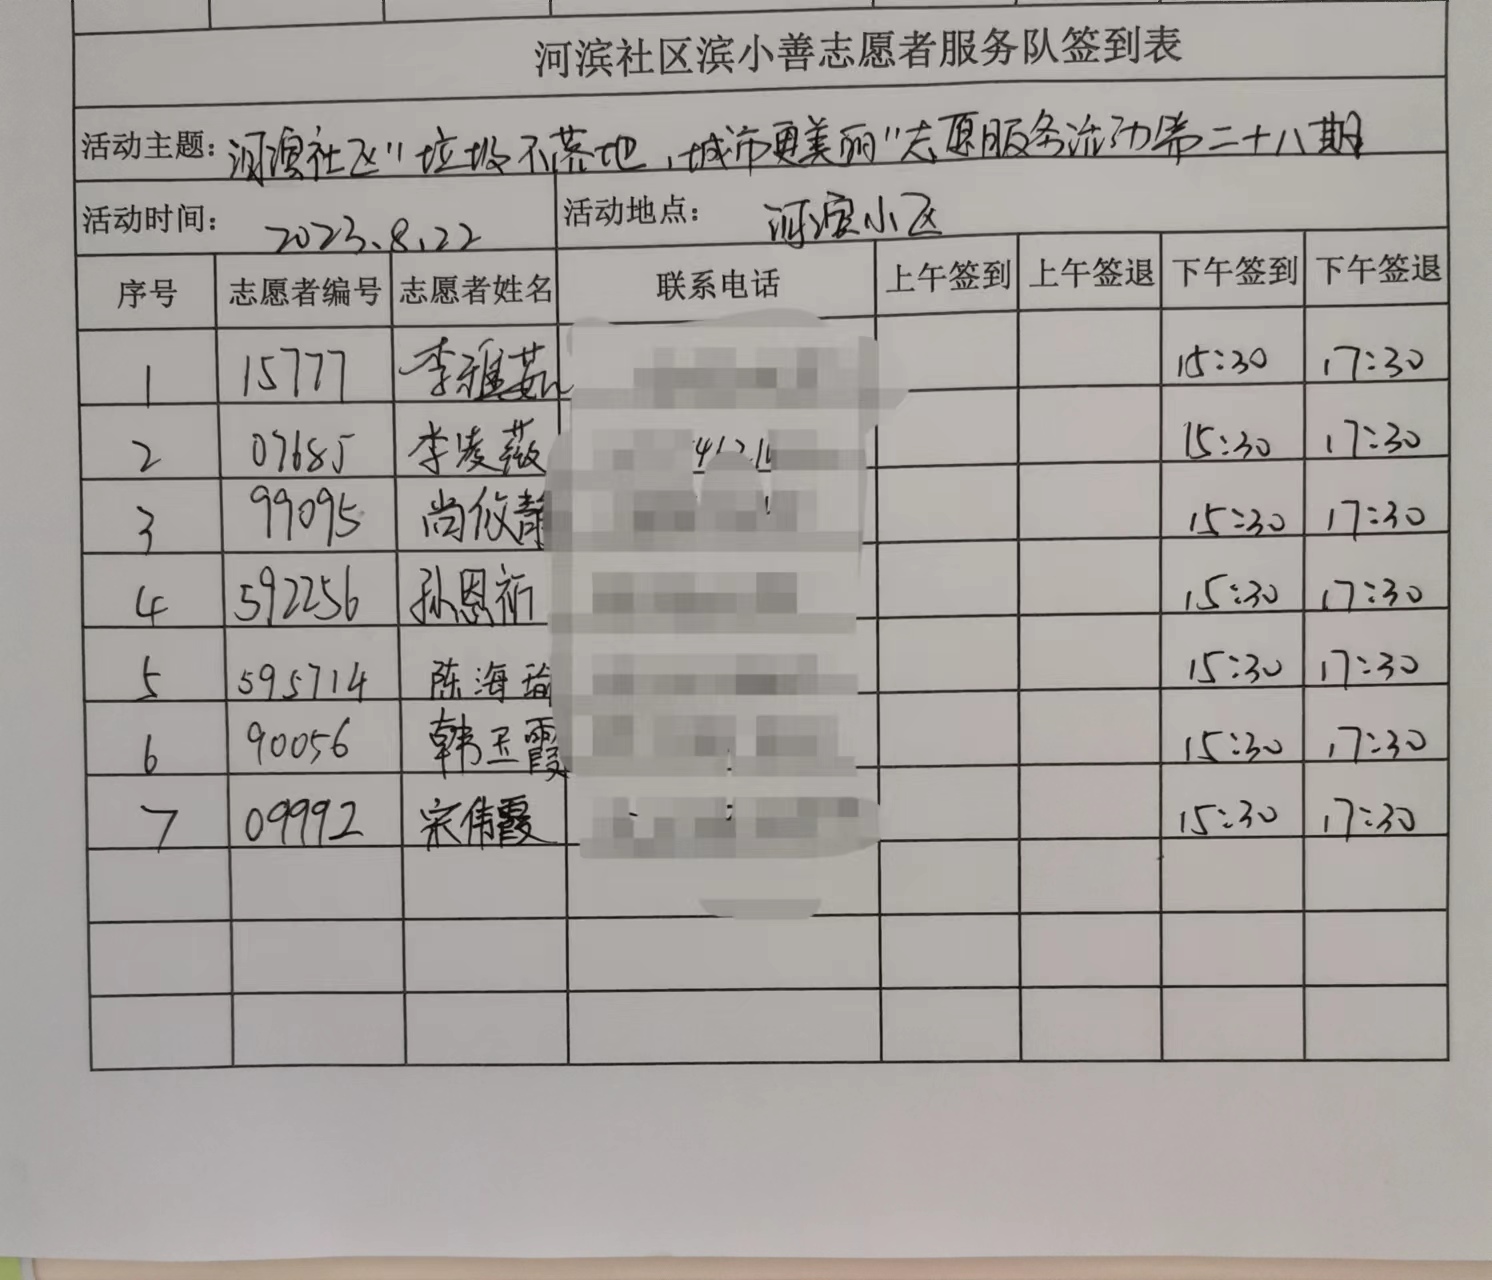 河滨社区滨小善志愿者服务队签到表
活动主题：河滨社区"垃圾不落地，城市更美丽"志愿服务活动第二十八期
活动时间： 2023.8.22 活动地点： 河滨小区
序号 志愿者编号 志愿者姓名 联系电话 上午签到 上午签退 下午签到 下午签退
1 15777 李雅茹 15:30 17:30
2 07685 李凌薇 15:30 17:30
3 99095 尚攸静 15:30 17:30
4 592256 孙恩祈 15:30 17:30
5 595714 陈海瑜 15:30 17:30
6 90056 韩玉霞 15:30 17:30
7 09992 宋伟霞 15:30 17:30